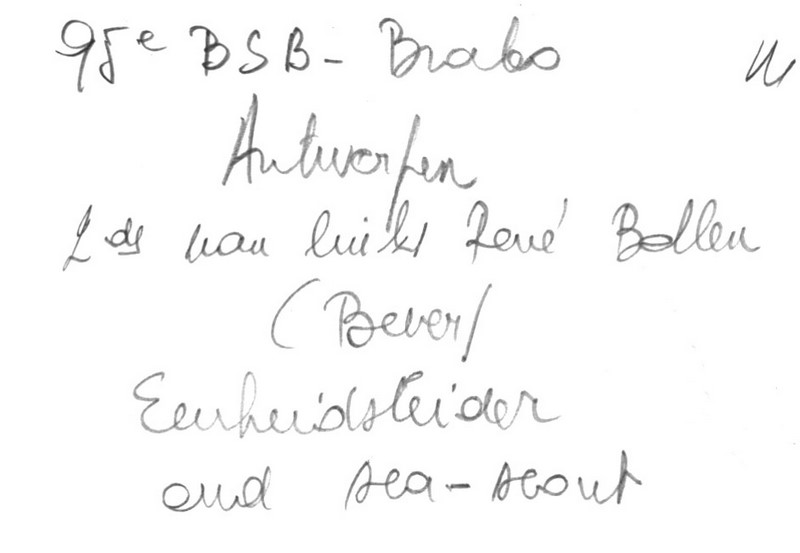 95e BSB - Brabo
Antwerpen
2de van links René Bollen
(Bever)
Eenheidsleider
oud sea-scout